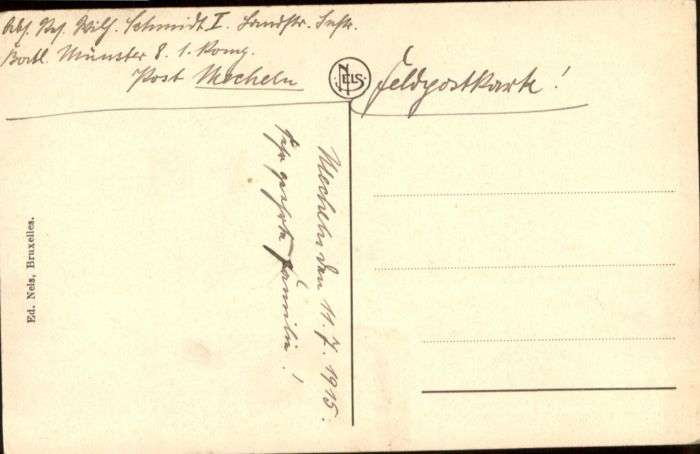 Abs. Uff. Wilh. Schmidt I. Landstr. Inftr.
Batl. Münster 8. 1. Komp.
Post Mecheln
NELS
Feldpostkarte!
Mecheln den 11. 7. 1915.
Sehr geehrte Familie!
Ed. Nels, Bruxelles.